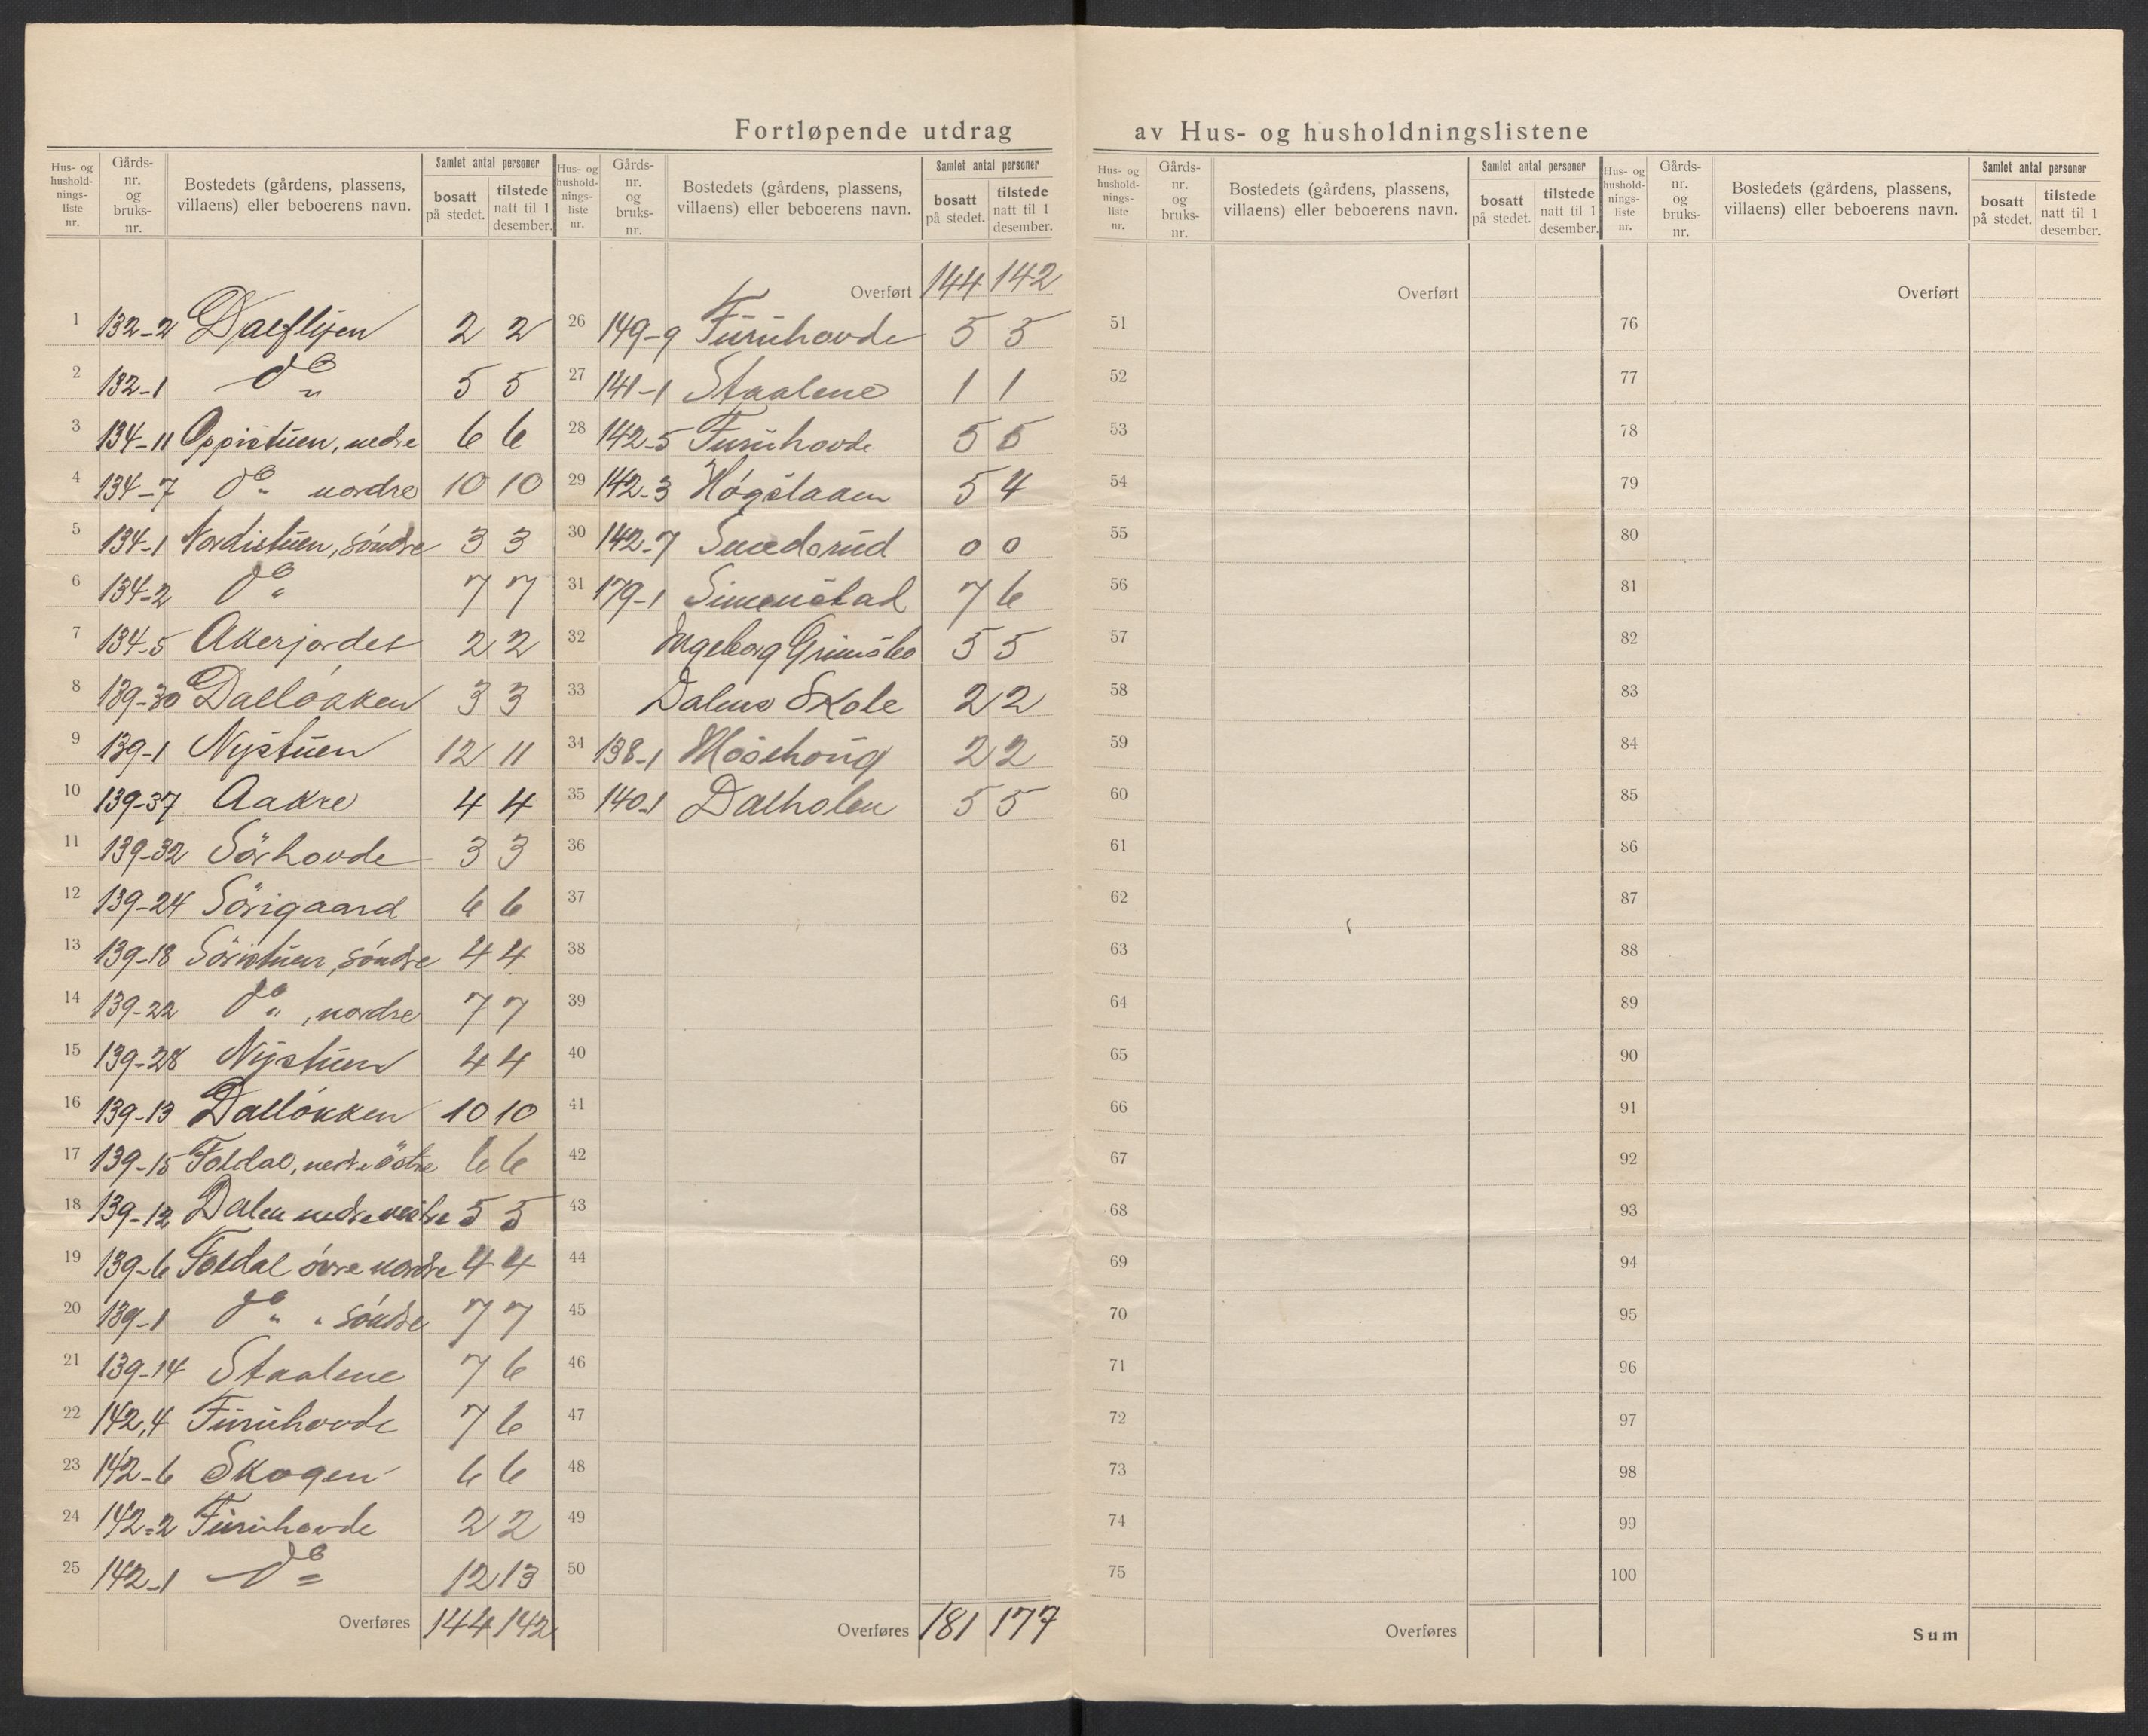 Fortløpende utdrag av Hus- og husholdningslistene
Hus- og husholdnings-liste nr. Gårds-nr. og bruks-nr. Bostedets (gårdens, plassens, villaens) eller beboerens navn. Samlet antal personer bosatt på stedet. tilstede natt til 1 desember.
1 132-2 Dalflyen 2 2
2 132-1 do 5 5
3 134-11 Oppistuen, nedre 6 6
4 134-7 do nordre 10 10
5 134-1 Nordistuen, søndre 3 3
6 134-2 do 7 7
7 134-5 Akerjordet 2 2
8 139-30 Dalløkken 3 3
9 139-1 Nystuen 12 11
10 139-37 Aakre 4 4
11 139-32 Sörhovde 3 3
12 139-24 Sörigaard 6 6
13 139-18 Söristuen, søndre 4 4
14 139-22 do, nordre 7 7
15 139-28 Nystuen 4 4
16 139-13 Dalløkken 10 10
17 139-15 Foldal, nedre östre 6 6
18 139-12 Dalen nedre vestre 5 5
19 139-6 Foldal øvre nordre 4 4
20 139-1 do " søndre 7 7
21 139-14 Staalene 7 6
22 142,4 Furuhovde 7 6
23 142-6 Skogen 6 6
24 142-2 Furuhovde 2 2
25 142-1 do 12 13
Overføres 144 142
Hus- og husholdnings-liste nr. Gårds-nr. og bruks-nr. Bostedets (gårdens, plassens, villaens) eller beboerens navn. Samlet antal personer bosatt på stedet. tilstede natt til 1 desember.
Overført 144 142
26 149-9 Furuhovde 5 5
27 141-1 Staalene 1 1
28 142-5 Furuhovde 5 5
29 142-3 Høgslaaen 5 4
30 142-7 Smedsrud 0 0
31 179-1 Simenstad 7 6
32 Ingeborg Grimsbo 5 5
33 Dalens Skole 2 2
34 138-1 Mosehoug 2 2
35 140-1 Dalholen 5 5
36
37
38
39
40
41
42
43
44
45
46
47
48
49
50
Overføres 181 177
Hus- og husholdnings-liste nr. Gårds-nr. og bruks-nr. Bostedets (gårdens, plassens, villaens) eller beboerens navn. Samlet antal personer bosatt på stedet. tilstede natt til 1 desember.
Overført
51
52
53
54
55
56
57
58
59
60
61
62
63
64
65
66
67
68
69
70
71
72
73
74
75
Overføres
Hus- og husholdnings-liste nr. Gårds-nr. og bruks-nr. Bostedets (gårdens, plassens, villaens) eller beboerens navn. Samlet antal personer bosatt på stedet. tilstede natt til 1 desember.
Overført
76
77
78
79
80
81
82
83
84
85
86
87
88
89
90
91
92
93
94
95
96
97
98
99
100
Sum